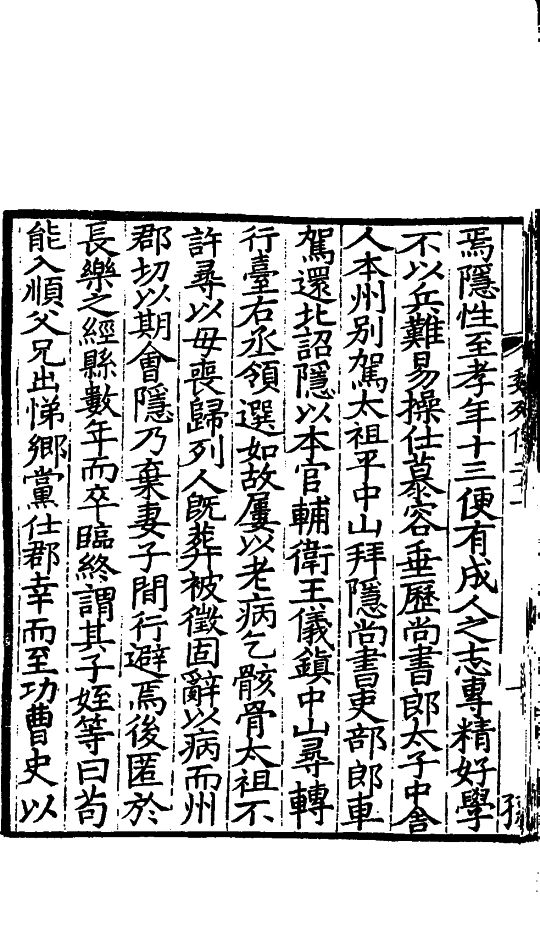 焉隱性至孝年十三便有成人之志專精好學
不以兵難易操仕慕容垂歷尚書郎太子中舍
人本州別駕太祖平中山拜隱尚書吏部郎車
駕還北詔隱以本官輔衛王儀鎮中山尋轉
行臺右丞領選如故屢以老病乞骸骨太祖不
許尋以母喪歸列人旣葬被徵固辭以病而州
郡切以期會隱乃棄妻子間行避焉後匿於
長樂之經縣數年而卒臨終謂其子姪等曰苟
能入順父兄出悌鄉黨仕郡幸而至功曹史以